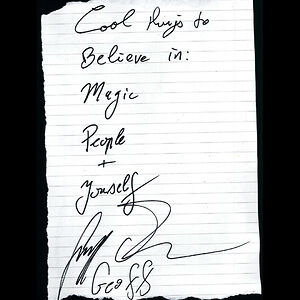 Cool things to
Believe in:
Magic
People
+
Yourself
Geoff